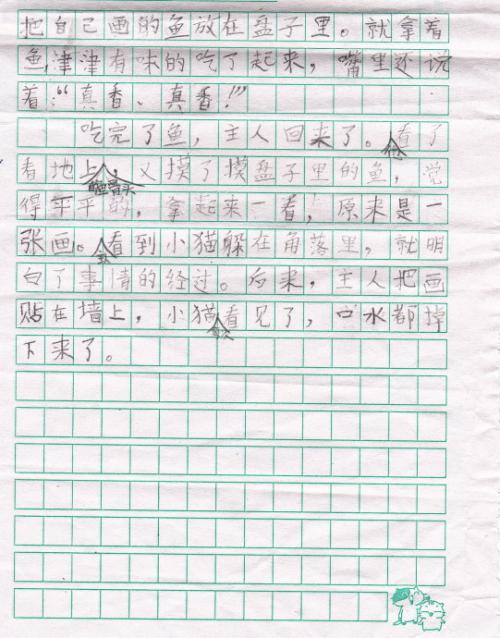 把自己画的鱼放在盘子里。就拿着
鱼津津有味的吃了起来，嘴里还说
着：“真香、真香！”
吃完了鱼，主人回来了。他看了
看地上鱼骨头，又摸了摸盘子里的鱼，觉
得平平的，拿起来一看，原来是一
张画。看到小猫躲在角落里，就明
白了事情的经过。后来，主人把画
贴在墙上，小猫看见了，口水都掉
下来了。